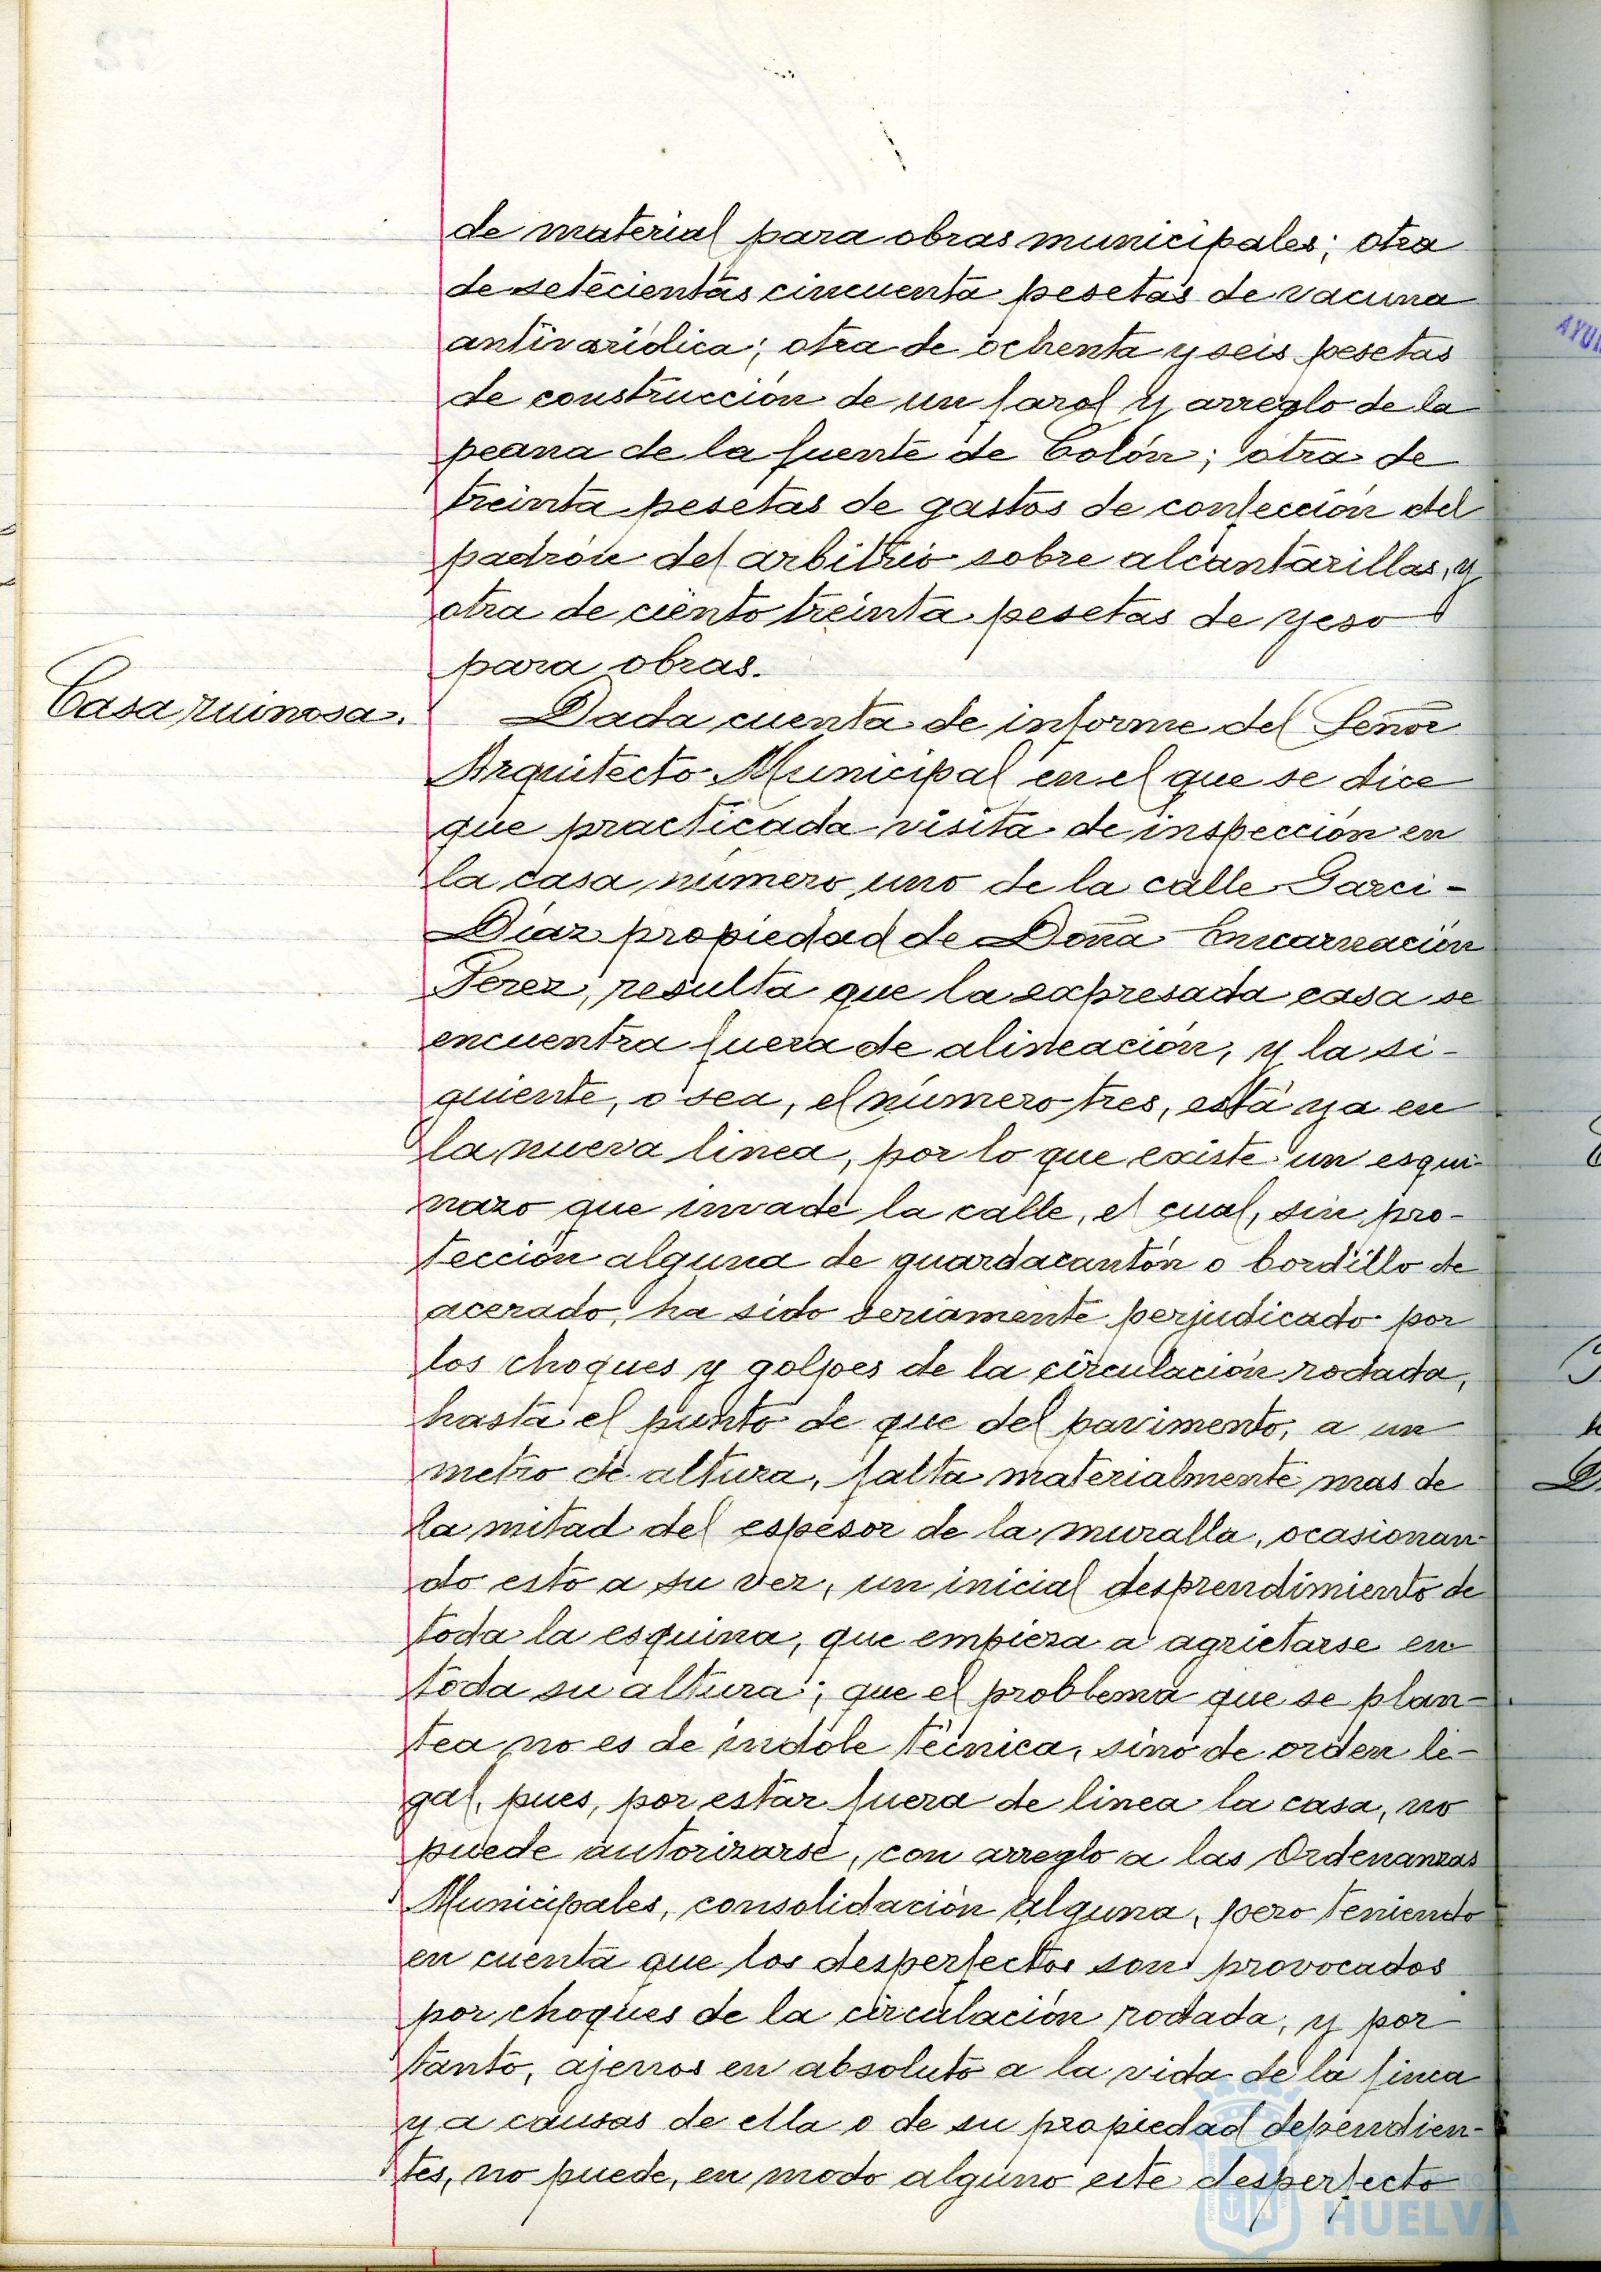 de material para obras municipales; otra
de setecientas cincuenta pesetas de vacuna
antivariólica; otra de ochenta y seis pesetas
de construcción de un farol y arreglo de la
peana de la fuente de Colón; otra de
treinta pesetas de gastos de confección del
padrón del arbitrio sobre alcantarillas, y
otra de ciento treinta pesetas de yeso
para obras.
Casa ruinosa.
Dada cuenta de informe del Señor
Arquitecto Municipal en el que se dice
que practicada visita de inspección en
la casa número uno de la calle Garci-
Díaz propiedad de Doña Encarnación
Perez, resulta que la expresada casa se
encuentra fuera de alineación, y la si-
guiente, o sea, el número tres, está ya en
la nueva linea, por lo que existe un esqui-
nazo que invade la calle, el cual, sin pro-
tección alguna de guardacantón o bordillo de
acerado, ha sido seriamente perjudicado por
los choques y golpes de la circulación rodada,
hasta el punto de que del pavimento, a un
metro de altura, falta materialmente mas de
la mitad del espesor de la muralla, ocasionan-
do esto a su vez, un inicial desprendimiento de
toda la esquina, que empieza a agrietarse en
toda su altura; que el problema que se plan-
tea no es de índole técnica, sinó de orden le-
gal, pues, por estar fuera de linea la casa, no
puede autorizarse, con arreglo a las Ordenanzas
Municipales, consolidación alguna, pero teniendo
en cuenta que los desperfectos son provocados
por choques de la circulación rodada, y por
tanto, ajenos en absoluto a la vida de la finca
y a causas de ella o de su propiedad dependien-
tes, no puede, en modo alguno este desperfecto
HUELVA